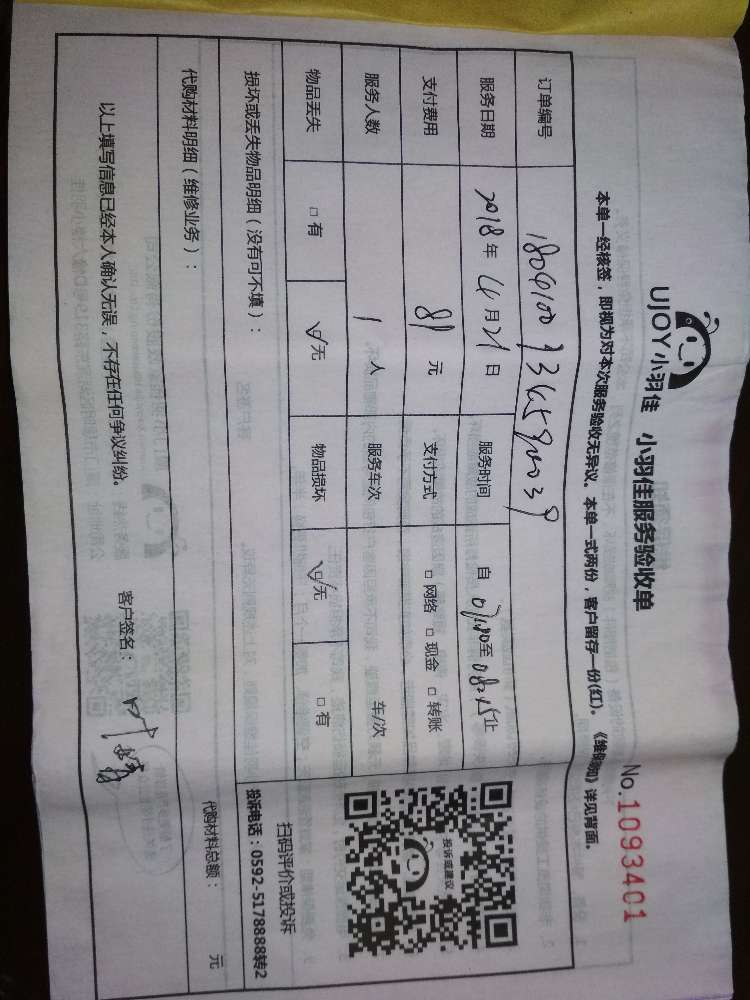 UJOY小羽佳 小羽佳服务验收单
No.1093401
本单一经核签，即视为对本次服务验收无异议。本单一式两份，客户留存一份(红)。《维保须知》详见背面。
订单编号
服务日期 2018年4月21日 服务时间 自 至 08:45止
支付费用 81元 支付方式 □网络 □现金 □转账
服务人数 1人 服务车次 车/次
物品丢失 □有 ☑无 物品损坏 ☑无 □有
投诉或建议
扫码评价或投诉
投诉电话：0592-5178888转2
损坏或丢失物品明细（没有可不填）：
代购材料明细（维修业务）：
代购材料总额： 元
以上填写信息已经本人确认无误，不存在任何争议纠纷。
客户签名：